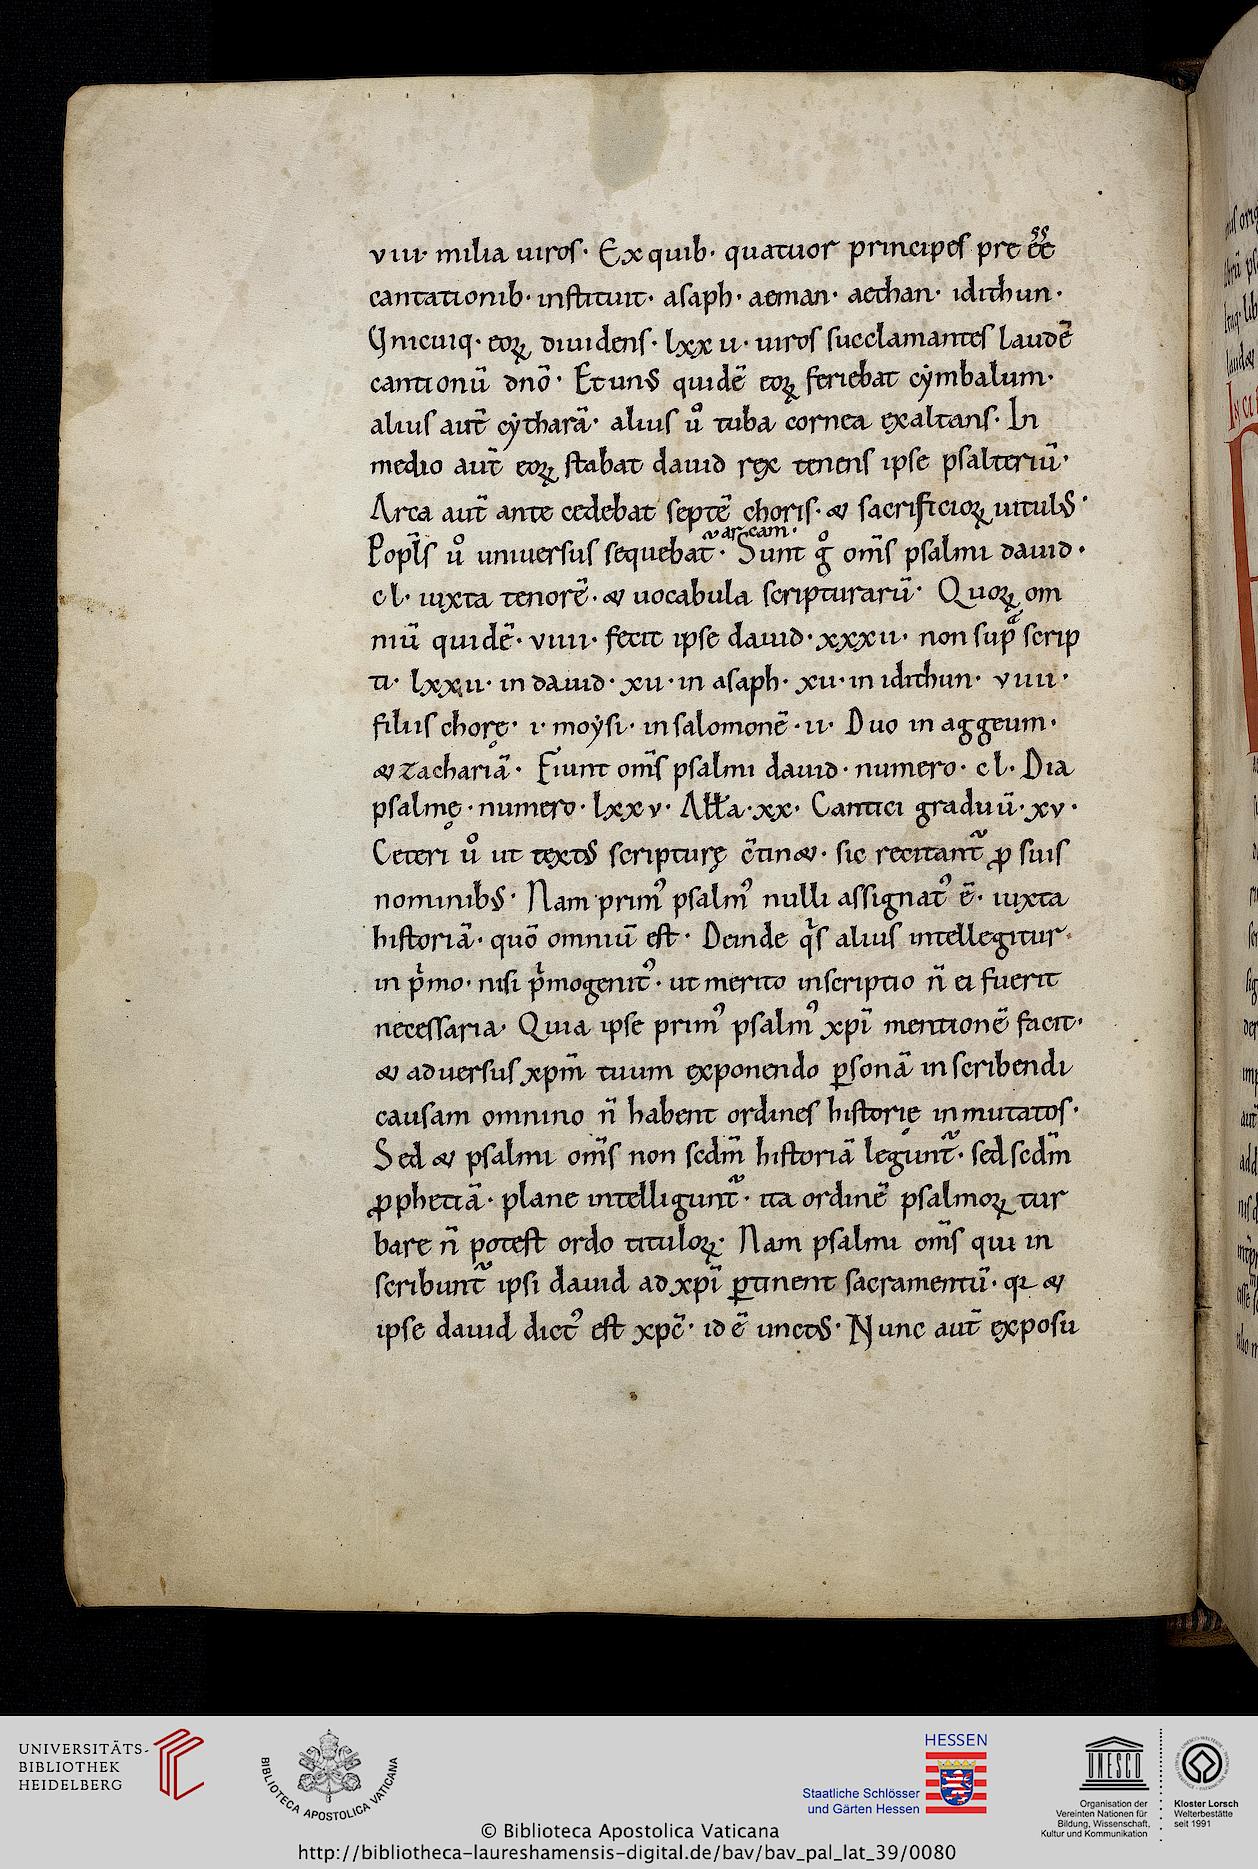 vııı· milia uiros· Ex quib· quatuor principes pre e͞e ss
cantationib· instituit· asaph· aeman· aethan· idithun·
Vnicuiq· eoꝝ diuidens· lxx u· uiros succlamantes laudē
cantionū dnō· Et unꝰ quidē eoꝝ feriebat cẏmbalum·
alius aut̄ cẏtharā· alius uͦ tuba cornea exaltans· In
medio aut̄ eoꝝ stabat dauid rex tenens ipse psalteriū·
Arca aut̄ ante cedebat septē choris· & sacrificioꝝ uitulꝰ·
Popl̄s uͦ uniuersus sequebat᷑· arcam· Sunt gͦ om̄s psalmi dauid·
cl· iuxta tenorē· & uocabula scripturarū· Quoꝝ om
niū quidē· vıııı· fecit ipse dauid· xxxıı· non sup̄ scrip
ti· lxxıı· in dauid· xıı· in asaph· xıı· in idithun· vıııı·
filiis chorę· ı· moẏsi· in salomonē· ıı· Duo in aggeum·
& zachariā· Fiunt om̄s psalmi dauid· numero· cl· Dia
psalmę· numero· lxxv· Alƚƚa· xx· Cantici graduū· xv·
Ceteri uͦ ut textꝰ scripturę c̄tin&· sic recitant᷑ ꝓ suis
nominibꝰ· Nam primꝰ psalmꝰ nulli assignatꝰ ē· iuxta
historiā· quō omniū est· Deinde qͥs alius intellegitur·
in pͥmo· nisi pͥmogenitꝰ· ut merito inscriptio n̄ ei fuerit
necessaria· Quia ipse primꝰ psalmꝰ xpī mentionē facit·
& aduersus xpm̄ tuum exponendo ꝑsonā inscribendi
causam omnino n̄ habent ordines historię inmutatos·
Sed & psalmi om̄s non scdm̄ historiā legunt᷑· sed scdm̄
ꝓphetiā· plane intelligunt᷑· ita ordinē psalmoꝝ tur
bare n̄ potest ordo tituloꝝ· Nam psalmi om̄s qui in
scribunt᷑ ipsi dauid ad xpī ꝑtinent sacramentū· qꝛ &
ipse dauid dictꝰ est xpc̄· id ē unctꝰ· Nunc aut̄ exposu
UNIVERSITÄTS-
BIBLIOTHEK
HEIDELBERG
BIBLIOTECA APOSTOLICA VATICANA
HESSEN
Staatliche Schlösser
und Gärten Hessen
UNESCO
Organisation der
Vereinten Nationen für
Bildung, Wissenschaft,
Kultur und Kommunikation
Kloster Lorsch
Welterbestätte
seit 1991
© Biblioteca Apostolica Vaticana
http://bibliotheca-laureshamensis-digital.de/bav/bav_pal_lat_39/0080